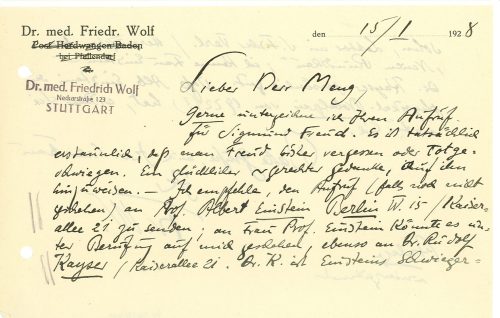 Dr. med. Friedr. Wolf
Post Herdwangen Baden
bei Pfullendorf
den 15/I 1928
Dr. med. Friedrich Wolf
Neckarstraße 123
STUTTGART
Lieber Herr Meng,
Gerne unterzeichne ich Ihren Aufruf
für Sigmund Freud. Es ist tatsächlich
erstaunlich, daß man Freud bisher vergessen oder totge-
schwiegen. Ein glücklicher u. gerechter Gedanke, auf ihn
hinzuweisen. — Ich empfehle, den Aufruf (falls noch nicht
geschehen) an Prof. Albert Einstein Berlin W. 15 / Kaiser-
allee 21 zu senden; an Frau Prof. Einstein könnte es un-
ter Berufung auf mich geschehen, ebenso an Dr. Rudolf
Kayser / Kaiserallee 21. Dr. K. ist Einsteins Schwieger-